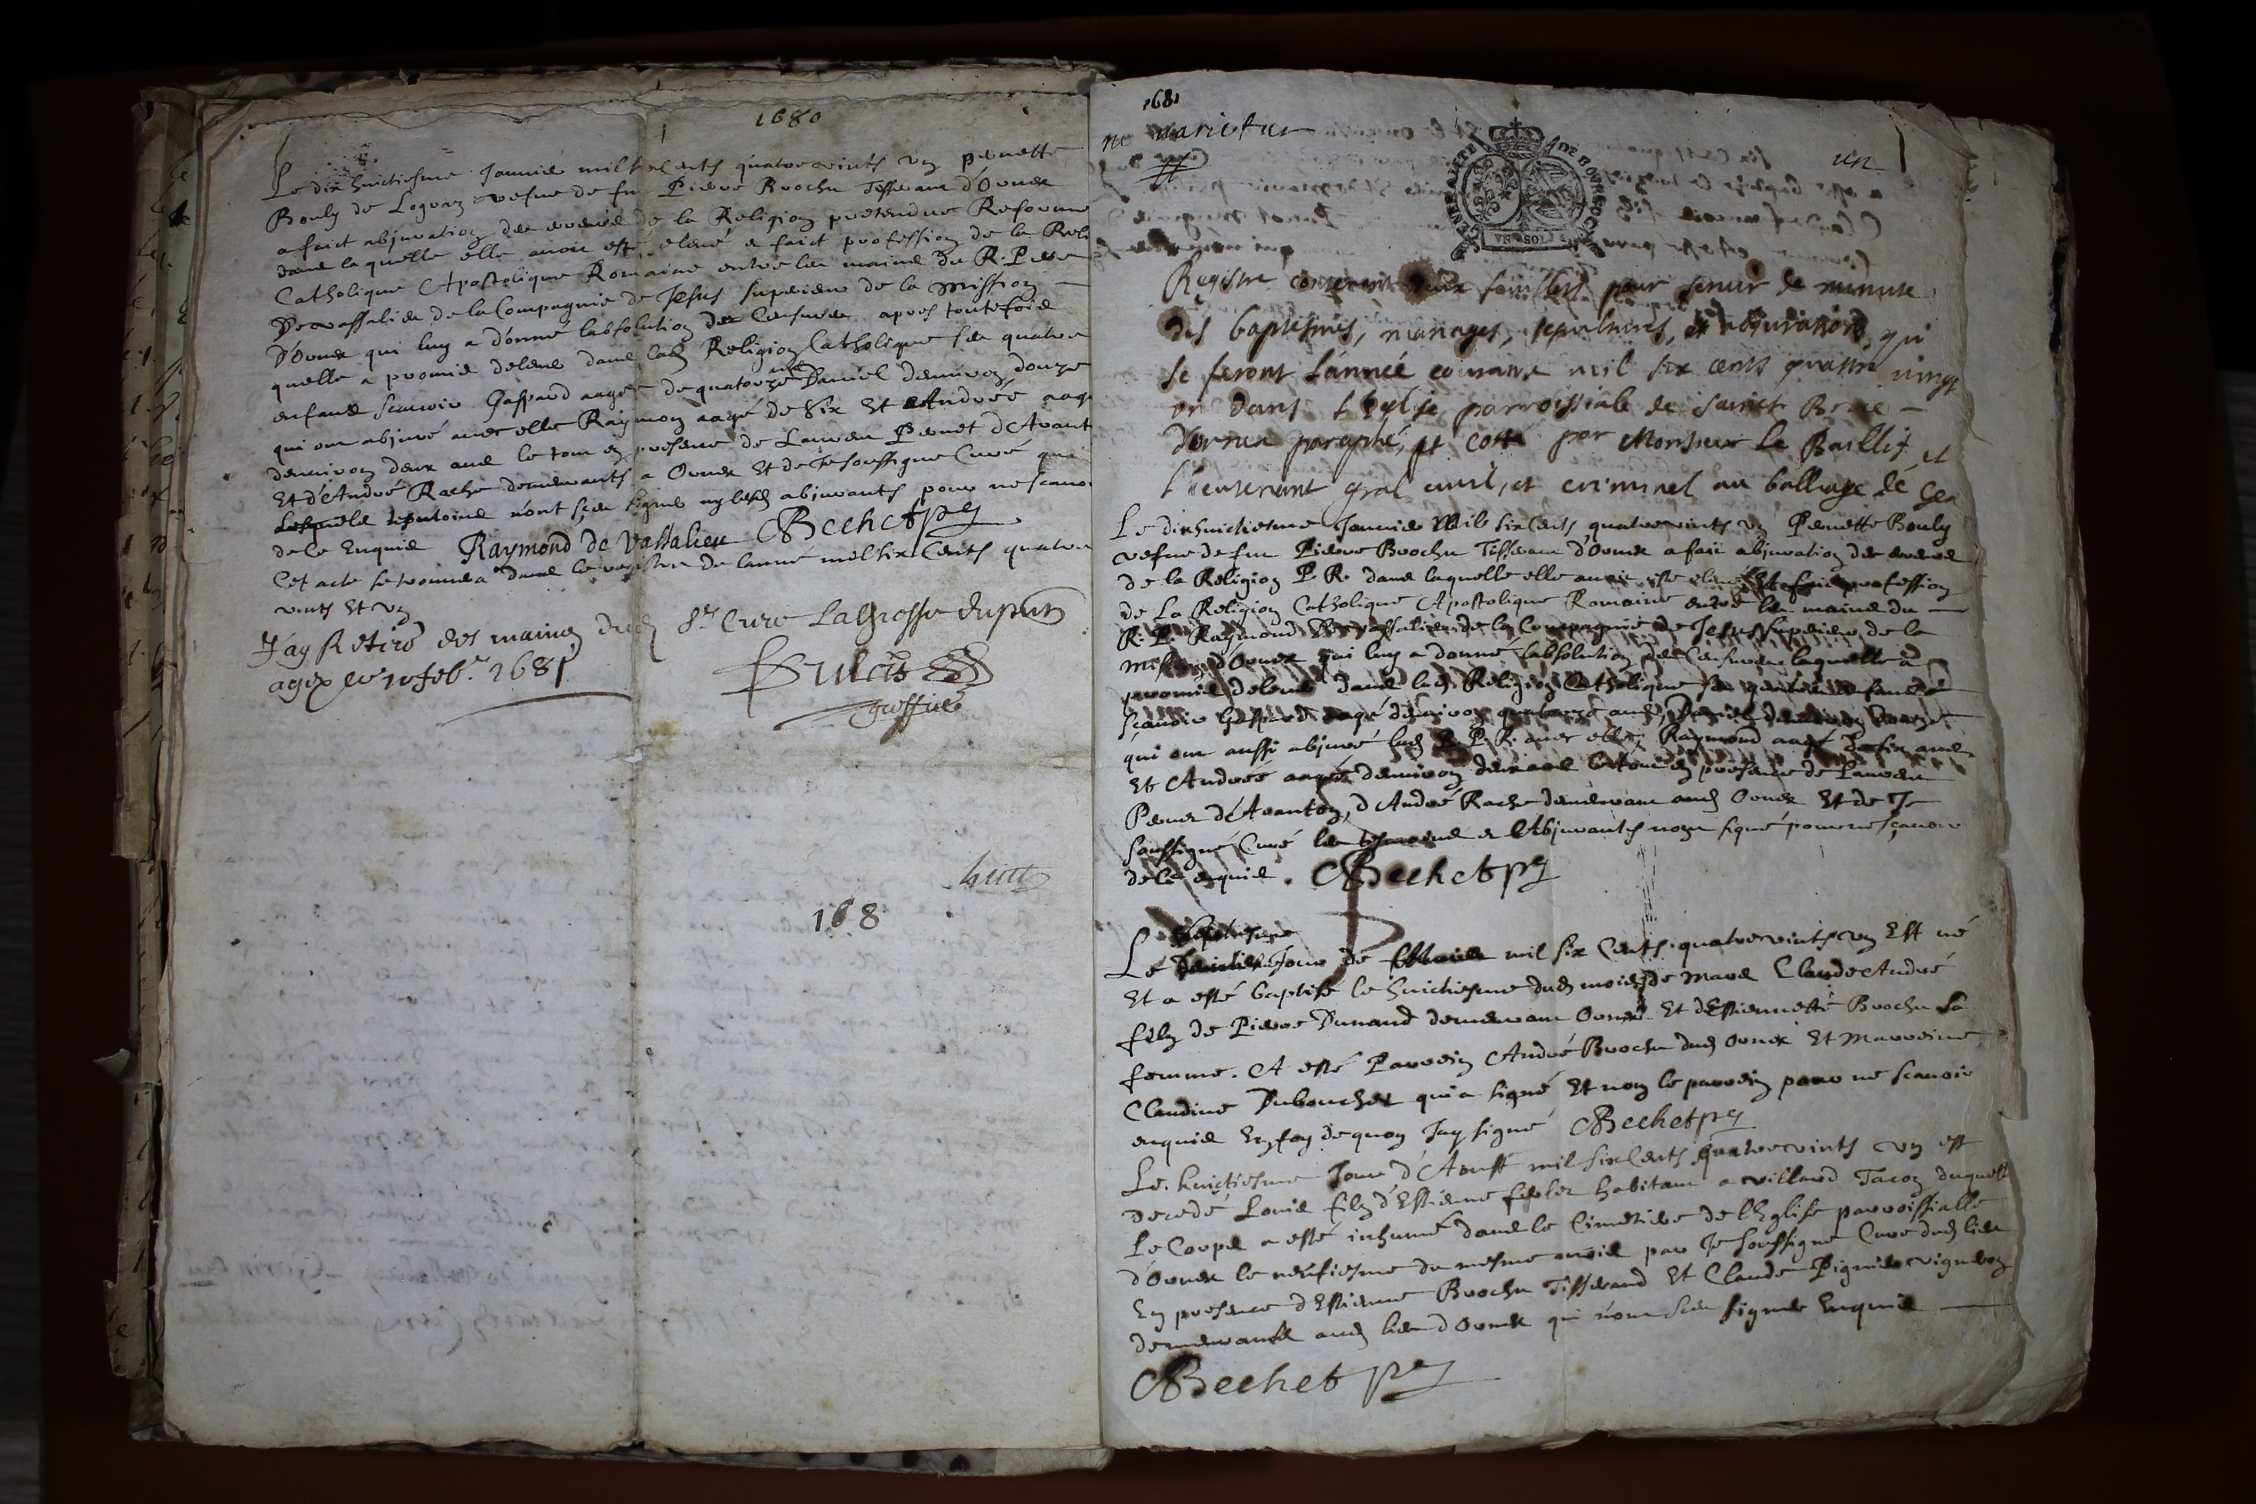 1680
Le dix huictiesme Janvier mil six cents quatre vints un Pernette
Bouly de Logras vefue de fu Pierre Brochu Tisserant d'Ornex
a faict abjuration des erreurs de la Religion pretendue Reformee
dans laquelle elle avoit esté elevé a faict profession de la Reli
Catholique Apostolique Romaine entre les mains du R. Pere
De vassalieu de la Compagnie de Jesus superieur de la Mission
d'Ornex qui luy a donné labsolution des Censures apres toutefois
quelle a promis delever dans lad Religion Catholique ses quatre
enfans scavoir Gaspard aagé de quatorze ans Daniel d'environ douze
qui ont abjuré avec elle Raymon aagé de Six Et Andrée aag
denviron deux ans le tout en presence de Laurent Pernet d'Avant
Et d'André Rache demeurants a Ornex Et de Je soussigne Curé qui
Lesquels tesmoins n'ont sceu signer ny lesd abjurants pour ne scavo
de ce Enquis Raymond de Vassalieu CBechet p
Cet acte se trouvera dans le registre de lanné mil six Cents quatre
vints Et un
J'ay Retiré des mains dud Sr Curé La Grosse du pnt
a gex ce 10 feb. 1681
greffier
huit
168
1681
ne varietur
un
GENERALITE DE BOURGOGNE
UN SOL
Registre contenant huit feuillets pour servir de minute
des baptesmes, mariages, sepultures, et abjurations, qui
se feront l'année courante mil six cents quatre vingt
un dans l'Eglise parroissiale de sainct Brice
d'ornex paraphé, et cotté par Monsieur Le Baillif et
Lieutenant gnal civil, et criminel au balliage de Gex
Le dixhuictiesme Janvier Mil six Cents quatre vints un Pernette Bouly
vefue de fu Pierre Brochu Tisserant d'Ornex a faict abjuration des erreurs
de la Religion P. R. dans laquelle elle avoit esté elevé Et a faict profession
de La Religion Catholique Apostolique Romaine entre les mains du
R. P. Raymond De vassalieu de la Compagnie de Jesus superieur de la
Mission d'Ornex qui luy a donné labsolution des Censures laquelle a
promis delever dans lad Religion Catholique ses quatre enfans
scavoir Gaspard aagé d'environ quatorze ans, Daniel d'environ douze
qui ont aussi abjuré lad R. P. R. avec elle, Raymond aagé de six ans
Et Andrée aagée denviron deux ans le tout en presence de Laurent
Pernet d'Avanton, d'André Rache demeurant aud Ornex Et de Je
soussigné Curé les tesmoins et Abjurants nont signé pour ne sçavoir
de ce enquis. CBechet p
septiesme
Le Jour de mil six Cents quatre vints un Est né
Et a esté baptisé le huictiesme dud mois de Mars Claude André
filz de Pierre Dunand demeurant Ornex Et d'Estiennette Brochu sa
femme. A esté Parrein André Brochu dud Ornex Et Marreine
Claudine Dubouchet qui a signé Et non le parrein pour ne scavoir
enquis En foy de quoy J'ay signé CBechet p
Le huictiesme Jour d'Aoust mil six Cents quatre vints un est
Decedé Louis filz d'Estienne habitant a villard Tacon duquel
Le Corps a esté inhumé dans le Cimetiere de l'Eglise parroissialle
d'Ornex le neufiesme du mesme mois par Je Soussigné Curé dud lieu
En presence d'Estienne Brochu Tisserand Et Claude Pignier vigneron
demeurants aud lieu d'Ornex qui n'ont sceu signer Enquis
CBechet p